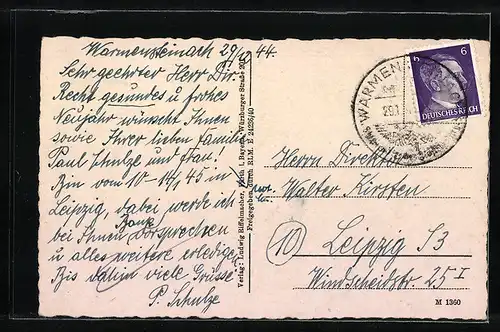 Warmensteinach 29/12 44.
Sehr geehrter Herr Dir.
Recht gesundes u frohes
Neujahr wünscht Ihnen
sowie Ihrer lieben Familie
Paul Schulze und Frau!
Bin vom 10-14/1 45 in
Leipzig, dabei werde ich
bei Ihnen vorsprechen
u alles weitere erledigen
Bis dahin viele Grüsse
P. Schulze
Verlag: Ludwig Riffelmacher, Fürth i. Bayern, Würzburger Straße
Freigegeben durch RLM. E 2426/40
WARMEN
6 6
DEUTSCHES REICH
Herrn Direktor
Walter Kirsten
10 Leipzig S3
Windscheidstr. 25 I
M 1360